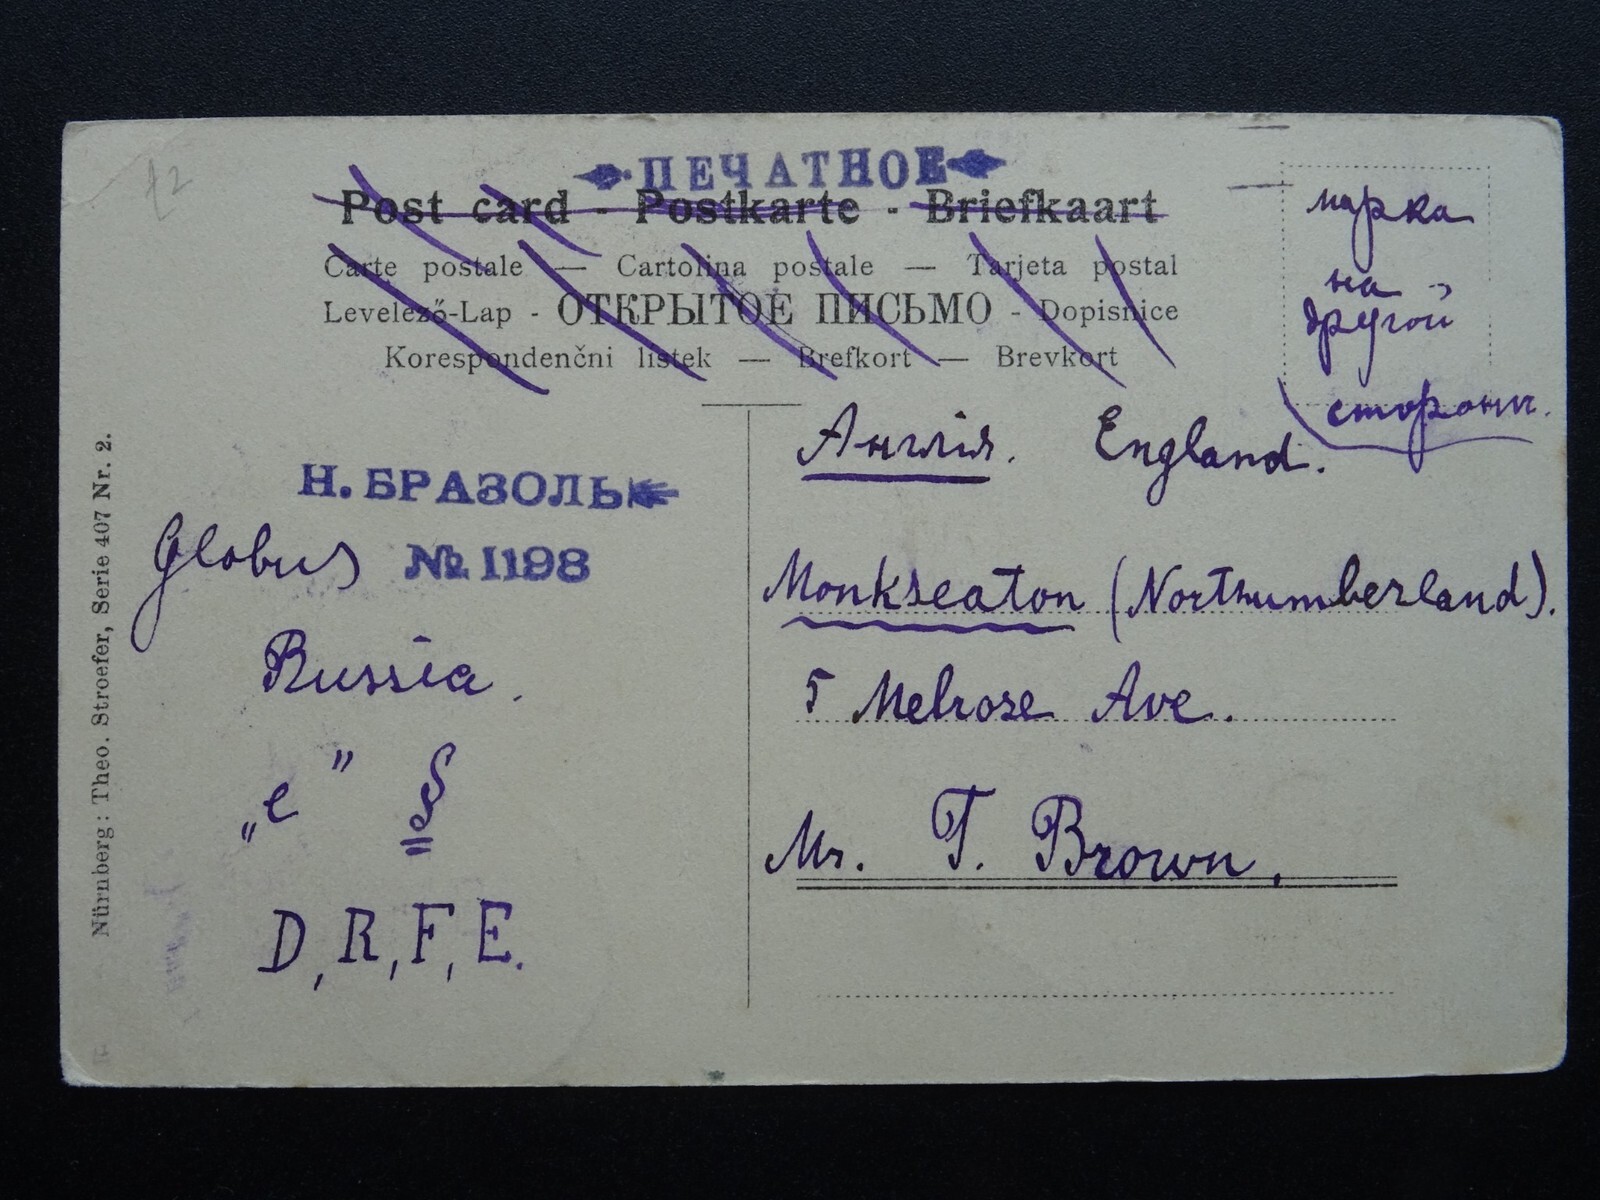 12
ПЕЧАТНОЕ
Post card - Postkarte - Briefkaart
Carte postale — Cartolina postale — Tarjeta postal
Levelező-Lap - ОТКРЫТОЕ ПИСЬМО - Dopisnice
Korespondenčni listek — Brefkort — Brevkort
марка
на
другой
сторонѣ.
Англія. England.
Н. БРАЗОЛЬ
Globus № 1198
Russia.
„e” §
D, R, F, E.
Monkseaton (Northumberland).
5 Melrose Ave.
Mr. T. Brown.
Nürnberg: Theo. Stroefer, Serie 407 Nr. 2.